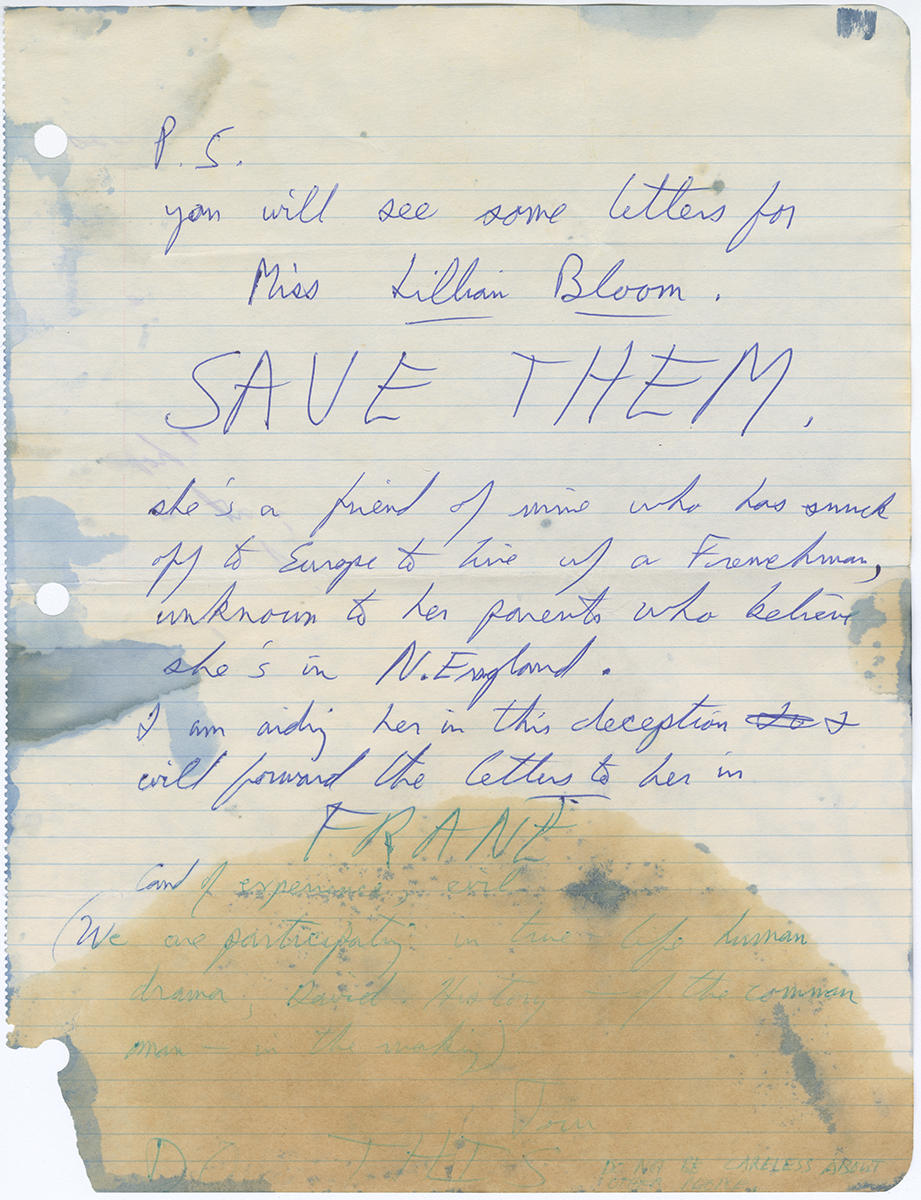 P.S.
you will see some letters for
Miss Lillian Bloom.
SAVE THEM.
she's a friend of mine who has snuck
off to Europe to live w/ a Frenchman,
unknown to her parents who believe
she's in N. England.
I am aiding her in this deception I
will forward the letters to her in
FRANE
Land of experience, evil
(We are participating in true-life human
drama, David. History — of the common
man — in the making)
Tom
THIS
DO NOT BE CARELESS ABOUT